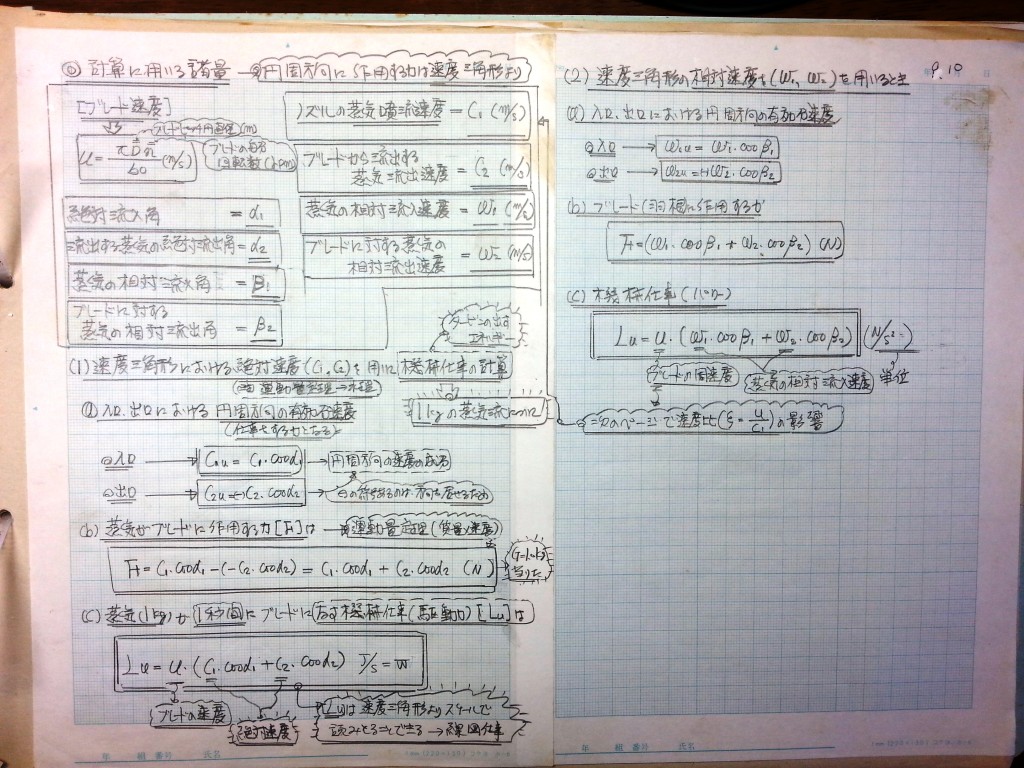 ◎ 計算に用いる諸量 → ◎円周方向に作用する力は速度三角形より
[ブレード速度]
ブレードピッチ円直径(m)
u = πDn/60 (m/s)
ブレードの毎分回転数(rpm)
ノズルの蒸気噴流速度 = C1 (m/s)
ブレードから流出する
蒸気流出速度 = C2 (m/s)
絶対流入角 = α1
蒸気の相対流入速度 = W1 (m/s)
流出する蒸気の絶対流出角 = α2
ブレードに対する蒸気の
相対流出速度 = W2 (m/s)
蒸気の相対流入角 = β1
ブレードに対する
蒸気の相対流出角 = β2
タービンの出すエネルギー
(1) 速度三角形における絶対速度(C1, C2)を用いた機械仕事の計算
1kgの蒸気流について
(a) 入口、出口における円周方向の有効な速度
(仕事をする力となる)
◎入口 → C1u = C1・cosα1 → 円周方向の速度の成分
◎出口 → C2u = (-)C2・cosα2 → ⊖の符号あるのは方向を
(b) 蒸気がブレードに作用する力[F]は → ◎運動量定理(質量×速度)
F = C1・cosα1 - (-C2・cosα2) = C1・cosα1 + C2・cosα2 (N)
当りた
(C) 蒸気(1kg)が1秒間にブレードになす機械仕事(駆動力)[Lu]は
Lu = u・(C1・cosα1 + C2・cosα2) J/s = W
ブレードの速度
絶対速度
(Lu)は速度三角形よりスケールで
読みとることできる → 線図仕事
年 組 番号 氏名
P.10
(2) 速度三角形の相対速度を(W1, W2)を用いるとき
(a) 入口、出口における円周方向の有効な速度
◎入口 → W1u = W1・cosβ1
◎出口 → W2u = -W2・cosβ2
(b) ブレード(羽根)に作用する力
F = (W1・cosβ1 + W2・cosβ2) (N)
(C) 機械仕事(パワー)
Lu = u・(W1・cosβ1 + W2・cosβ2)
単位
ブレードの周速度
蒸気の相対流入速度
次のページで速度比(ξ = u/C1)の影響
年 組 番号 氏名